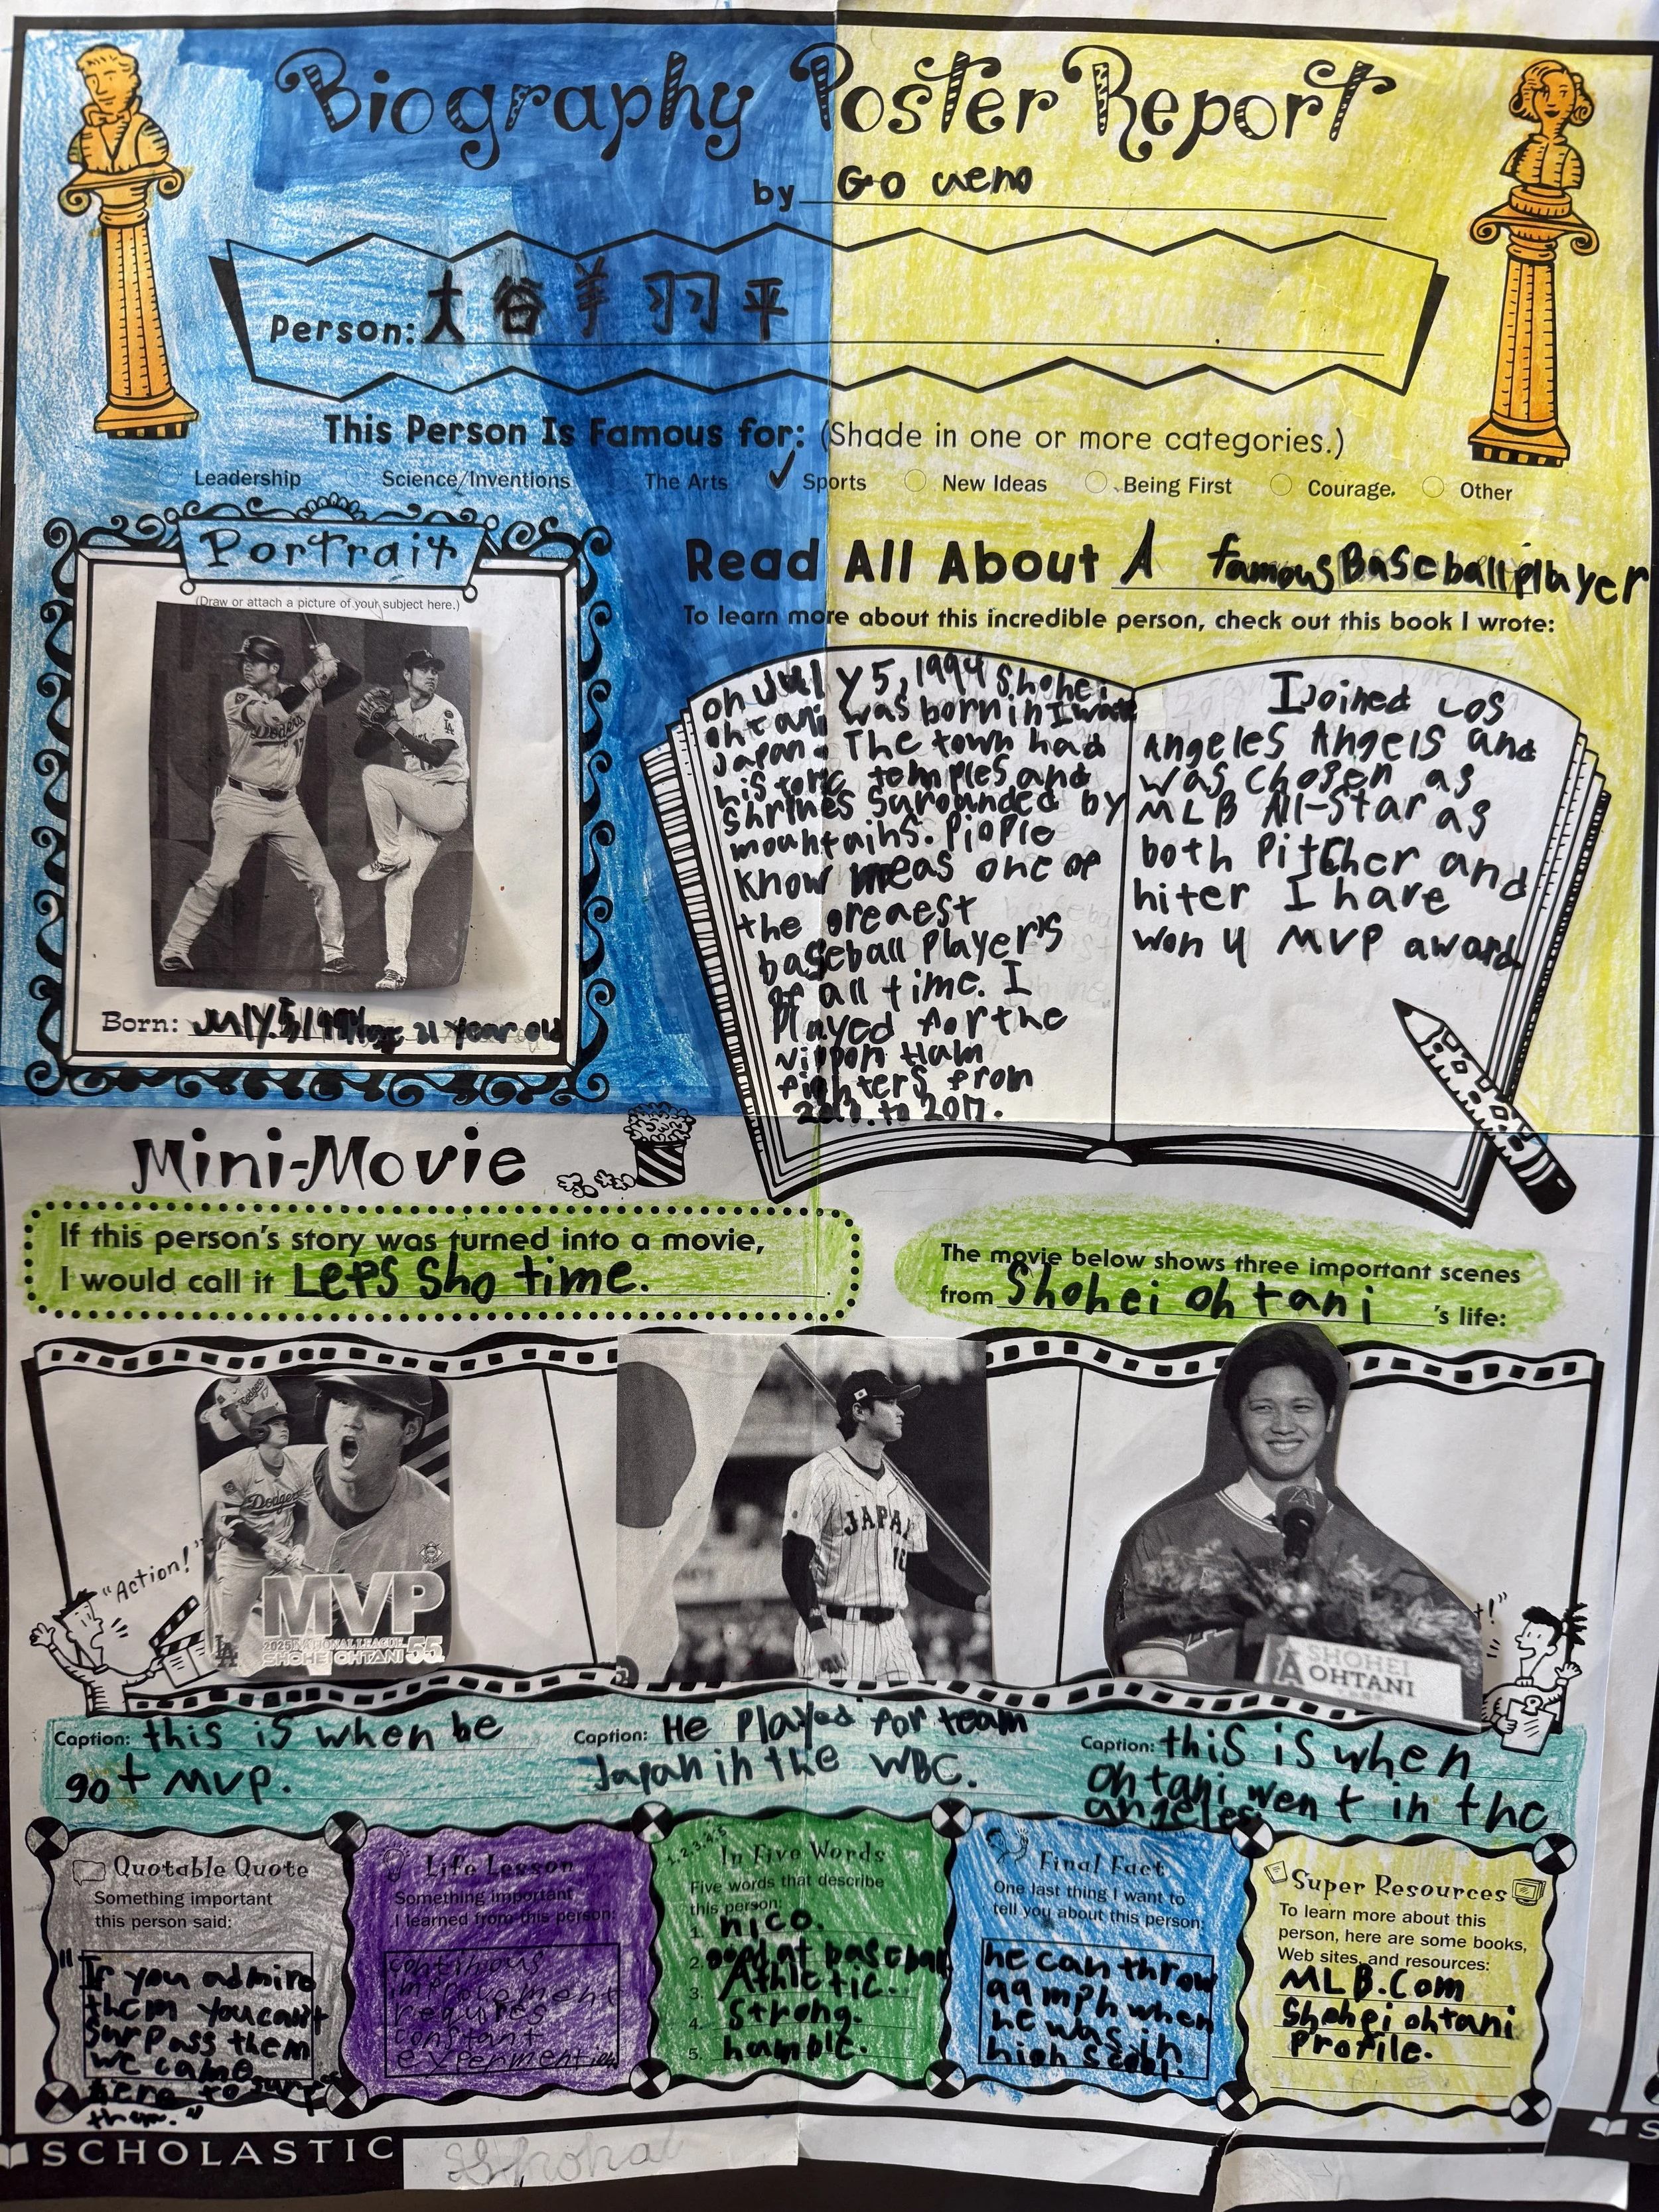 Biography Poster Report
by Go ueno
Person: 大谷羊羽平
This Person Is Famous for: (Shade in one or more categories.)
Leadership Science/Inventions The Arts ✓ Sports New Ideas Being First Courage. Other
Portrait
(Draw or attach a picture of your subject here.)
Dodgers
17
LA
Born: July.5,1994 31 year old
Read All About A famous Baseball player
To learn more about this incredible person, check out this book I wrote:
on July 5, 1994 Shohei
ohtani was born in Iwate
Japan. The town had
historic temples and
shrines surounded by
mountains. Piople
know me as one of
the greaest
baseball Player's
of all time. I
Played for the
Nippon Ham
Fighters from
to 2017.
I Joined Los
Angeles Angels and
was chosen as
MLB All-Star as
both Pitcher and
hiter I have
won 4 MVP award
Mini-Movie
If this person's story was turned into a movie,
I would call it Let's Sho time.
The movie below shows three important scenes
from Shohei ohtani 's life:
"Action!"
Dodgers
17
Dodgers
MVP
LA
2025 NATIONAL LEAGUE
SHOHEI OHTANI 55
JAPAN
16
A
SHOHEI
OHTANI
Caption: this is when he
got MVP.
Caption: He Played for team
Japan in the WBC.
Caption: this is when
ohtani went in the
angeles
Quotable Quote
Something important
this person said:
"If you admire
them you can't
surpass them
we came
here to surpass
them."
Life Lesson
Something important
I learned from this person:
continous
improvement
requires
constant
1, 2, 3, 4, 5
In Five Words
Five words that describe
this person:
1. nice.
2. good at baseball
3. Athletic.
4. Strong.
5. humble.
Final Fact
One last thing I want to
tell you about this person:
he can throw
99 mph when
he was in
high
Super Resources
To learn more about this
person, here are some books,
Web sites, and resources:
MLB.Com
Shohei ohtani
Profile.
SCHOLASTIC